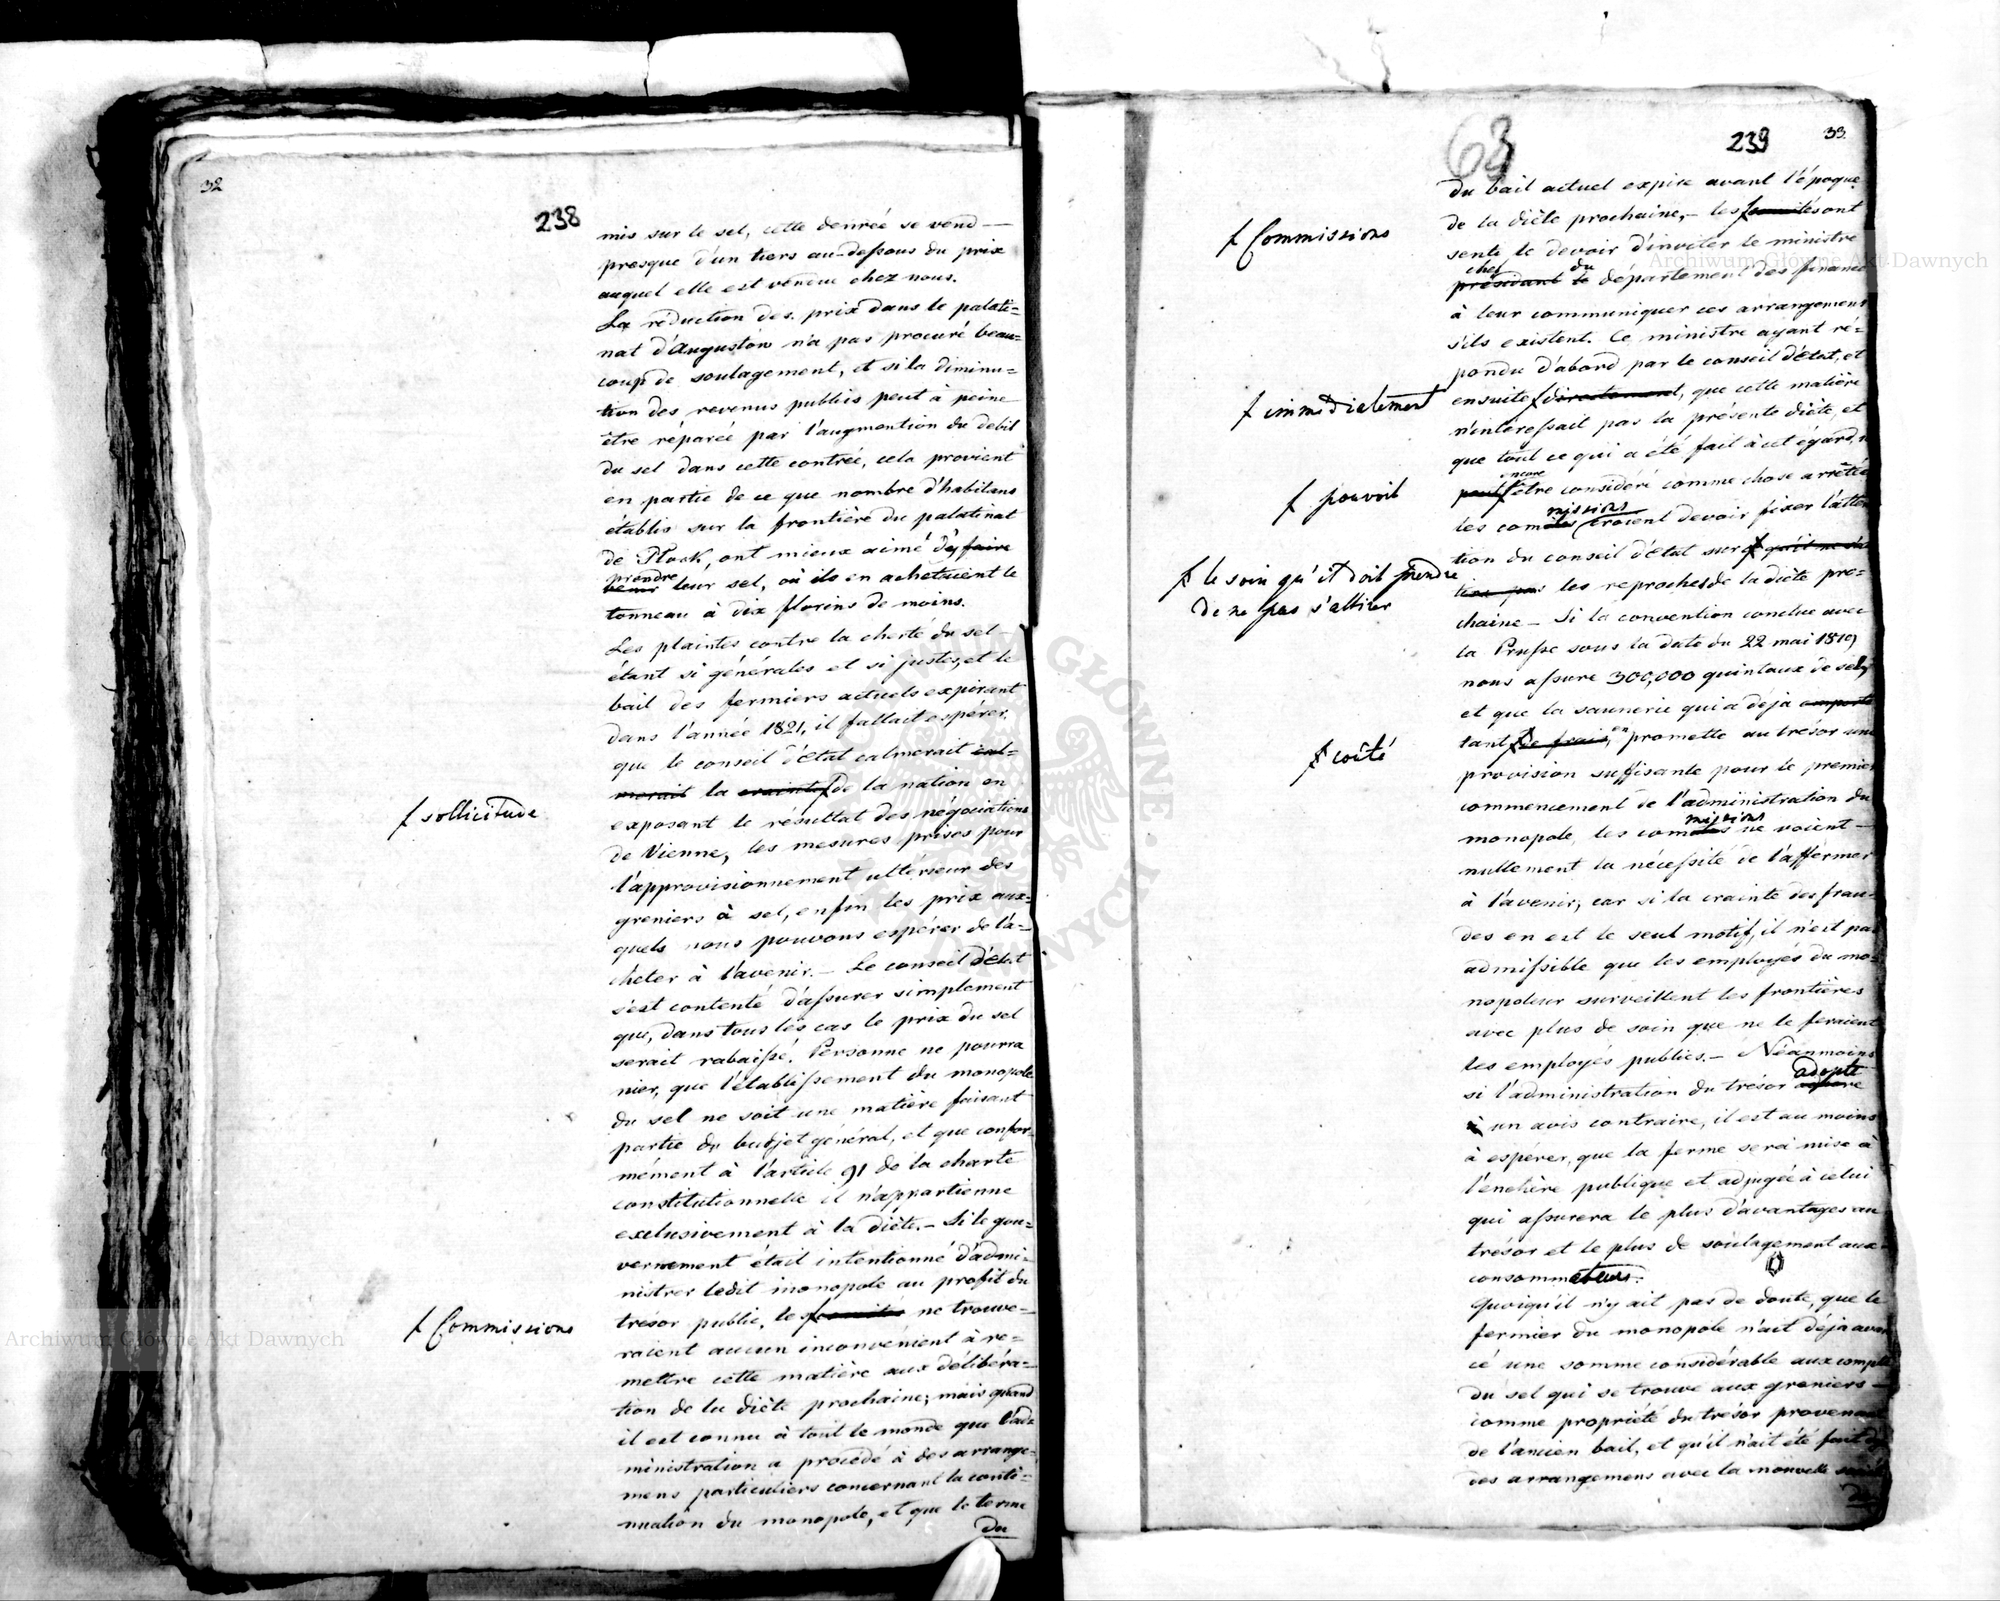 32
238
mis sur le sel, cette denrée se vend —
presque d'un tiers au-dessous du prix
auquel elle est vendue chez nous.
La réduction des prix dans le palati=
nat d'Augustow n'a pas procuré beau=
coup de soulagement, et si la diminu=
tion des revenus publics peut à peine
être réparée par l'augmention du debit
du sel dans cette contrée, cela provient
en partie de ce que nombre d'habitans
établis sur la frontière du palatinat
de Plock, ont mieux aimé d'y faire
prendre
venir leur sel, où ils en achetaient le
tonneau à dix florins de moins.
Les plaintes contre la cherté du sel —
étant si générales et si justes, et le
bail des fermiers actuels expirant
dans l'année 1821, il fallait espérer,
que le conseil d'Etat calmerait cal=
merait la crainte de la nation en
ƒ sollicitude
exposant le résultat des négociations
de Vienne, les mesures prises pour
l'approvisionnement ultérieur des
greniers à sel, enfin les prix aux=
quels nous pouvons espérer de l'a=
cheter à l'avenir. — Le conseil d'Etat
s'est contenté d'assurer simplement
que, dans tous les cas le prix du sel
serait rabaissé. Personne ne pourra
nier, que l'établissement du monopole
du sel ne soit une matière faisant
partie du budjet général, et que confor=
mément à l'article 91 de la charte
constitutionnelle il n'appartienne
exclusivement à la diète. — Si le gou=
vernement était intentionné d'admi=
nistrer ledit monopole au profit du
trésor public, les comités ne trouve=
ƒ Commissions
raient aucun inconvénient à re=
mettre cette matière aux délibéra=
tion de la diète prochaine; mais quand
il est connu à tout le monde que l'ad=
ministration a procédé à des arrange=
mens particuliers concernant la conti=
nuation du monopole, et que le terme
du
63
239
33.
du bail actuel expire avant l'époque
de la diète prochaine, — les comités ont
ƒ Commissions
senti le devoir d'inviter le ministre
chef du
présidant le département des finances
à leur communiquer ces arrangemens
s'ils existent. Ce ministre ayant ré=
pondu d'abord par le conseil d'Etat, et
ensuite directement, que cette matière
ƒ immédiatement
n'interessait pas la présente diète, et
que tout ce qui a été fait à cet égard,
encore
peut être considéré comme chose arrêtée
ƒ pouvoit
missions
les comités croient devoir fixer l'atten
tion du conseil d'Etat sur
ƒ le soin qu'il doit prendre
de ne pas s'attirer
les reproches de la diète pro=
chaine — Si la convention conclue avec
la Prusse sous la date du 22 mai 1819
nous assure 300,000 quintaux de sel,
et que la saunerie qui a déja emporté
tant de frais, en promette au trésor une
ƒ coûté
provision suffisante pour le premier
commencement de l'administration du
missions
monopole, les comités ne voient —
nullement la nécessité de l'affermer
à l'avenir; car si la crainte des frau=
des en est le seul motif, il n'est pas
admissible que les employés du mo=
nopoleur surveillent les frontières
avec plus de soin que ne le feraient
les employés publics. — Néanmoins
adopte
si l'administration du trésor
à un avis contraire, il est au moins
à espérer, que la ferme sera mise à
l'enchère publique et adjugée à celui
qui assurera le plus d'avantages au
trésor et le plus de soulagement aux
consommateurs.
Quoiqu'il n'y ait pas de doute, que le
fermier du monopole n'ait déja avan
cé une somme considérable aux compte
du sel qui se trouve aux greniers —
comme propriété du trésor provenant
de l'ancien bail, et qu'il n'ait été fait
des arrangemens avec la nouvelle
Archiwum Główne Akt Dawnych
Archiwum Główne Akt Dawnych